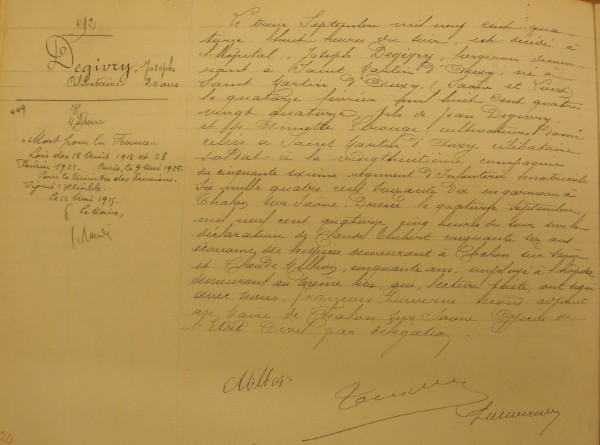 412
Degivry, Joseph
Célibataire 20 ans
449
"Mort pour la France"
Lois des 18 Août 1918 et 28
Février 1922. Paris, le 9 Mai 1925.
Pour le Ministre des Pensions.
Signé: illisible.
Le 12 Mai 1925.
Le Maire,
Le treize Septembre mil neuf cent qua-
torze huit heures du soir, est décédé à
l'hôpital, Joseph Degivry, vigneron demeu-
rant à Saint Martin d'Auxy, né à
Saint Martin d'Auxy (Saône et Loire)
le quatorze février mil huit cent quatre
vingt quatorze, fils de Jean Degivry
et de Annette cultivateurs domi
ciliés à Saint Martin d'Auxy, célibataire
soldat à la vingt huitième compagnie
du cinquante sixième régiment d'Infanterie matricule
six mille quatre cent soixante dix en garnison à
Chalon sur Saône. Dressé le quatorze septembre
mil neuf cent quatorze, cinq heures du soir sur la
déclaration de Claude cinquante six ans
économe des hospices demeurant à Chalon sur Saône
et Claude cinquante ans, employé à l'hôpital
demeurant au même lieu, qui, lecture faite, ont signé
avec nous, François Duverne second adjoint
au Maire de Chalon sur Saône Officier de
l'Etat Civil par délégation.
20